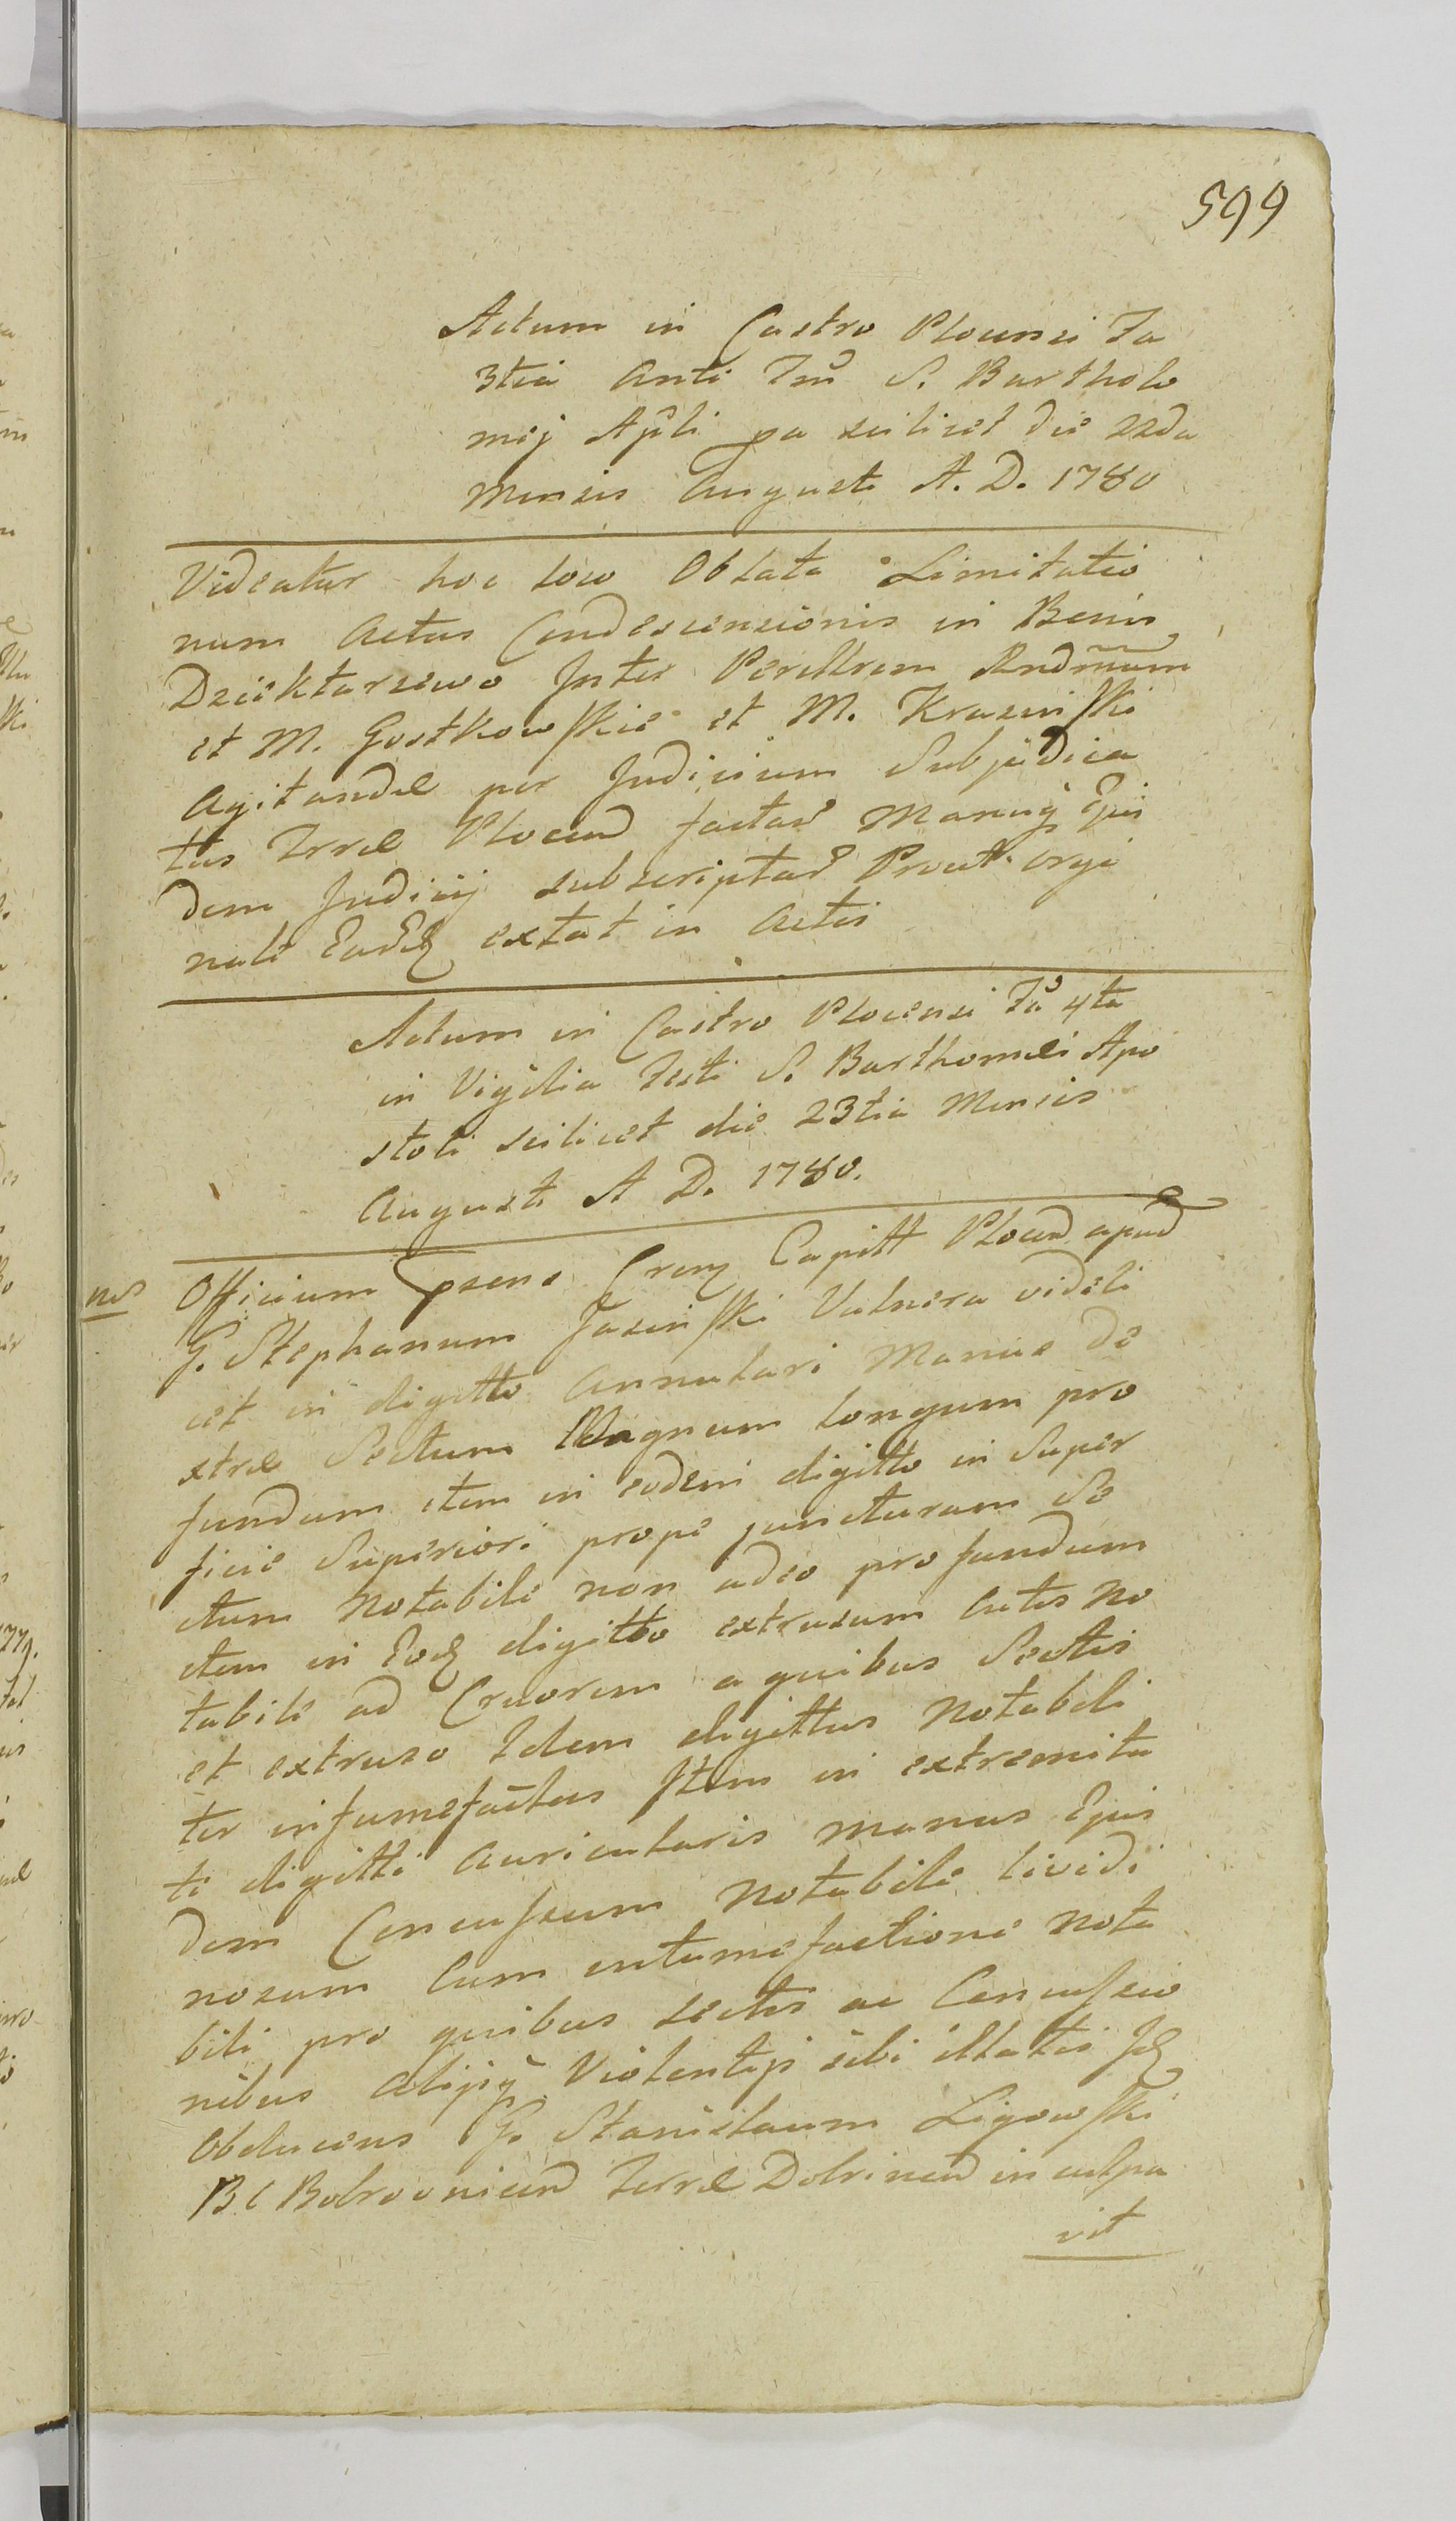 599
Actum in Castro Plocensi Fa
3tia Ante Fm S. Bartholo
mej Apli pa scilicet die 22da
Mensis Augusti A. D. 1780
Videatur hoc loco Oblata Limitatio
num Actus Condescensionis in Bonis
Dziektarzewo Inter Perillrem Rndmum
et M. Gostkowskie et M. Krasinski
Agitandæ per Judicium Subjudica
tus Terræ Plocen factar Manuq Ejus
dem Judicij subscriptar Prout orgi
nale Eard extat in Actis
Actum in Castro Plocensi Fa 4ta
in Vigilia Festi S. Barthomei Apo
stoli scilicet die 23tia Mensis
Augusti A D. 1780.
Officium psens Cren Capitt Plocen apud
G. Stephanum Jasinski Vulnera videli
cet in digitto Annulari Manus de
xtræ Sectum Magnum longum pro
fundum item in eodem digitto in Super
ficie Superiori prope juncturam Se
ctum Notabile non adeo profundum
item in Eod digitto extrusum Cutis No
tabile ad Cruorem a quibus Sectis
et extruso Idem digittus Notabili
ter infumefactus Item in extremita
te digitti Auricularis manus Ejus
dem Concussum Notabile lividi
nosum Cum intumefactione Nota
bili pro quibus Sectis ac Concussio
nibus Aliisq Violentijs sibi illatis Id
Obducens G. Stanislaum Ligowski
B C Bobrovnicen Terræ Dobrinen inculpa
vit